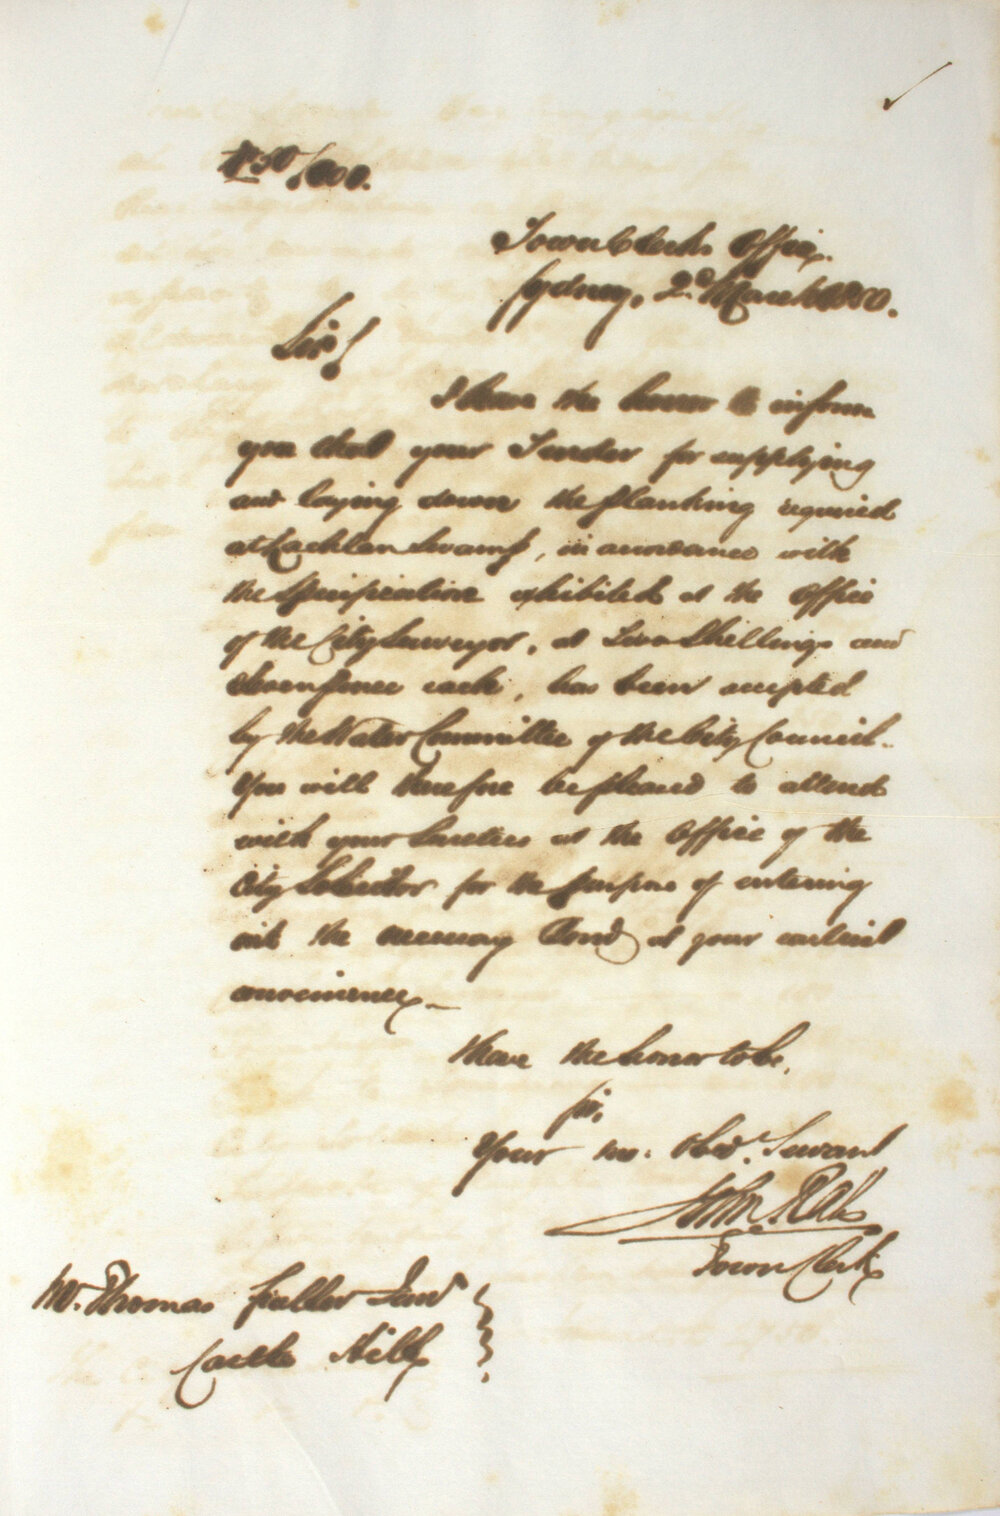 No 50/100.
Town Clerks Office.
Sydney, 2d March 1850.
Sir!
I have the honor to inform
you that your Tender for supplying
and laying down the planking required
at Lachlan Swamp, in accordance with
the Specification exhibited at the Office
of the City Surveyor, at Two Shillings and
Seven pence each, has been accepted
by the Water Committee of the City Council.
You will therefore be pleased to attend
with your Sureties at the Office of the
City Solicitor for the purpose of entering
into the necessary Bond at your earliest
convenience.
I have the honor to be,
Sir,
Your mo: Obed. Servant
John
Town Clerk
Mr. Thomas Fuller
Castle Hill